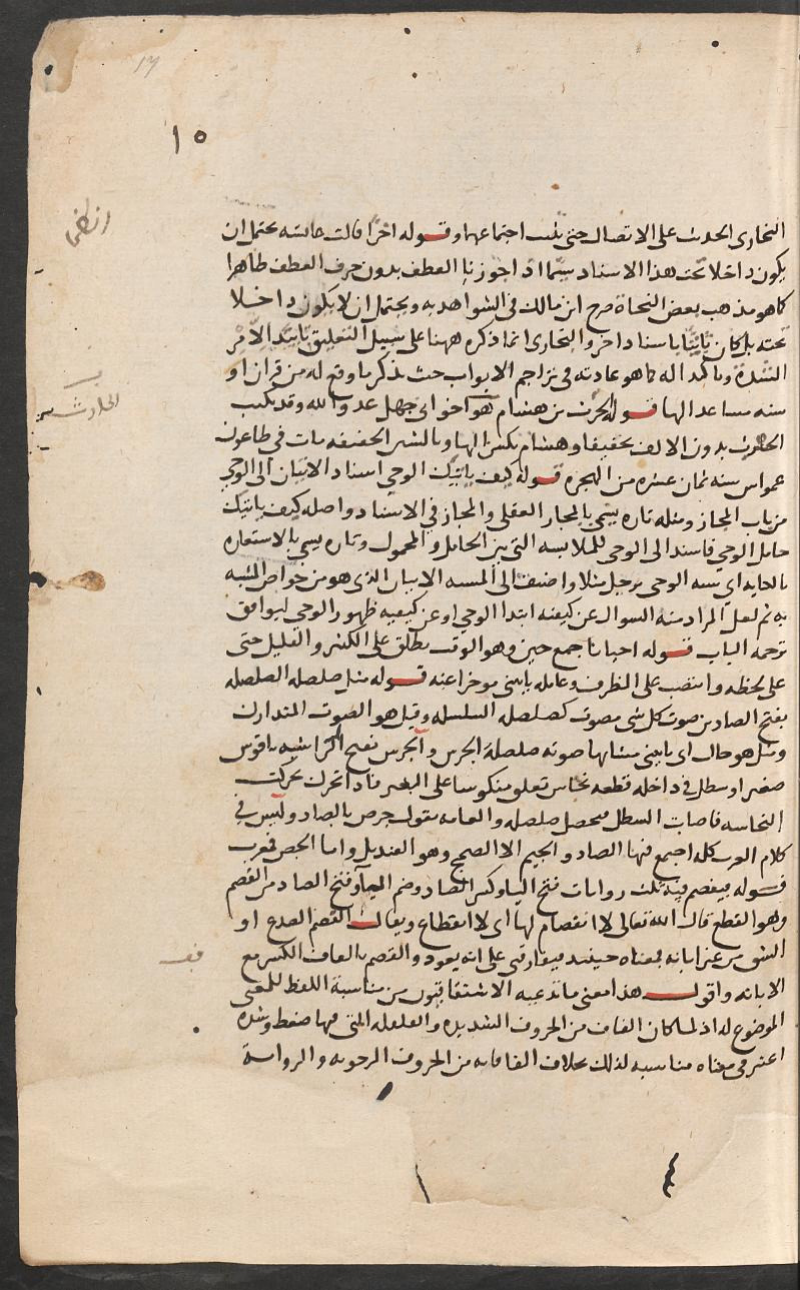 ١٥
البخارى الحديث على الاتصال حتى يثبت اجتماعهما وقوله اخرًا قالت عائشة يحتمل ان
يكون داخلا تحت هذا الاسناد سيّما اذا جوزنا العطف بدون حرف العطف ظاهرا
كما هو مذهب بعض النحاة صرح ابن مالك فى الشواهد به ويحتمل ان لا يكون داخلا
تحته بل كان ثابتًا باسناد اخر والبخارى انما ذكره ههنا على سبيل التعليق تاييدا لامر
الشدة وتاكيدا له كما هو عادته فى تراجم الابواب حيث يذكر ما وقع له من قران او
سنه مساعدا لها قوله الحرث بن هشام هو اخو ابى جهل عدو الله وقد يكتب
الحرث بدون الالف تخفيفا وهشام بكسر الها وبالشين الخفيفه مات فى طاعون
عمواس سنه ثمان عشره من الهجره قوله كيف ياتيك الوحى اسناد الاتيان الى الوحى
من باب المجاز ومثله تاره يسمى بالمجاز العقلى والمجاز فى الاسناد واصله كيف ياتيك
حامل الوحى فاسند الى الوحى للملابسه التى بين الحامل والمحمول وتاره يسمى بالاستعاره
بالكنايه اى شبه الوحى برجل مثلا واضيف الى المشبه الاتيان الذى هو من خواص المشبه
به ثم لعل المراد منه السوال عن كيفيه ابتدا الوحى او عن كيفيه ظهور الوحى ليوافق
ترجمه الباب قوله احيانا جمع حين وهو الوقت يطلق على الكثير والقليل حتى
على لحظه وانتصب على الظرف وعامله ياتينى موخرا عنه قوله مثل صلصله الصلصله
بفتح الصاد من صوت كل شى مصوت كصلصله السلسله وقيل هو الصوت المتدارك
ومثل هو حال اى ياتينى مشابها صوته صلصلة الجرس والجرس بفتح الرا شبه ناقوس
صغير او سطل فى داخله قطعه نحاس تعلق منكوسا على البعير فاذا تحرك تحركت
النحاسه فاصابت السطل فيحصل صلصله والعامه تقول جرص بالصاد وليس فى
كلام العرب كلمه اجتمع فيها الصاد والجيم الا الصمج وهو القنديل واما الجص فمعرب
قوله فيفصم فيه ثلث روايات فتح اليا وكسر الصاد وضم اليا وفتح الصاد من الفصم
وهو القطع قال الله تعالى لا انفصام لها اى لا انقطاع ويقال الفصم الصدع او
الشق من غير ابانه فمعناه حينئذ فيفارقنى على انه يعود والقصم بالقاف الكسر مع
الابانه واقول هذا معنى ما يدعيه الاشتقاقيون من مناسبة اللفظ للمعنى
الموضوع له اذ لما كان القاف من الحروف الشديده والقلقله التى فيها ضغط وشده
اعتبر فى معناه مناسبه لذلك بخلاف الفا فانه من الحروف الرخوه والرواية